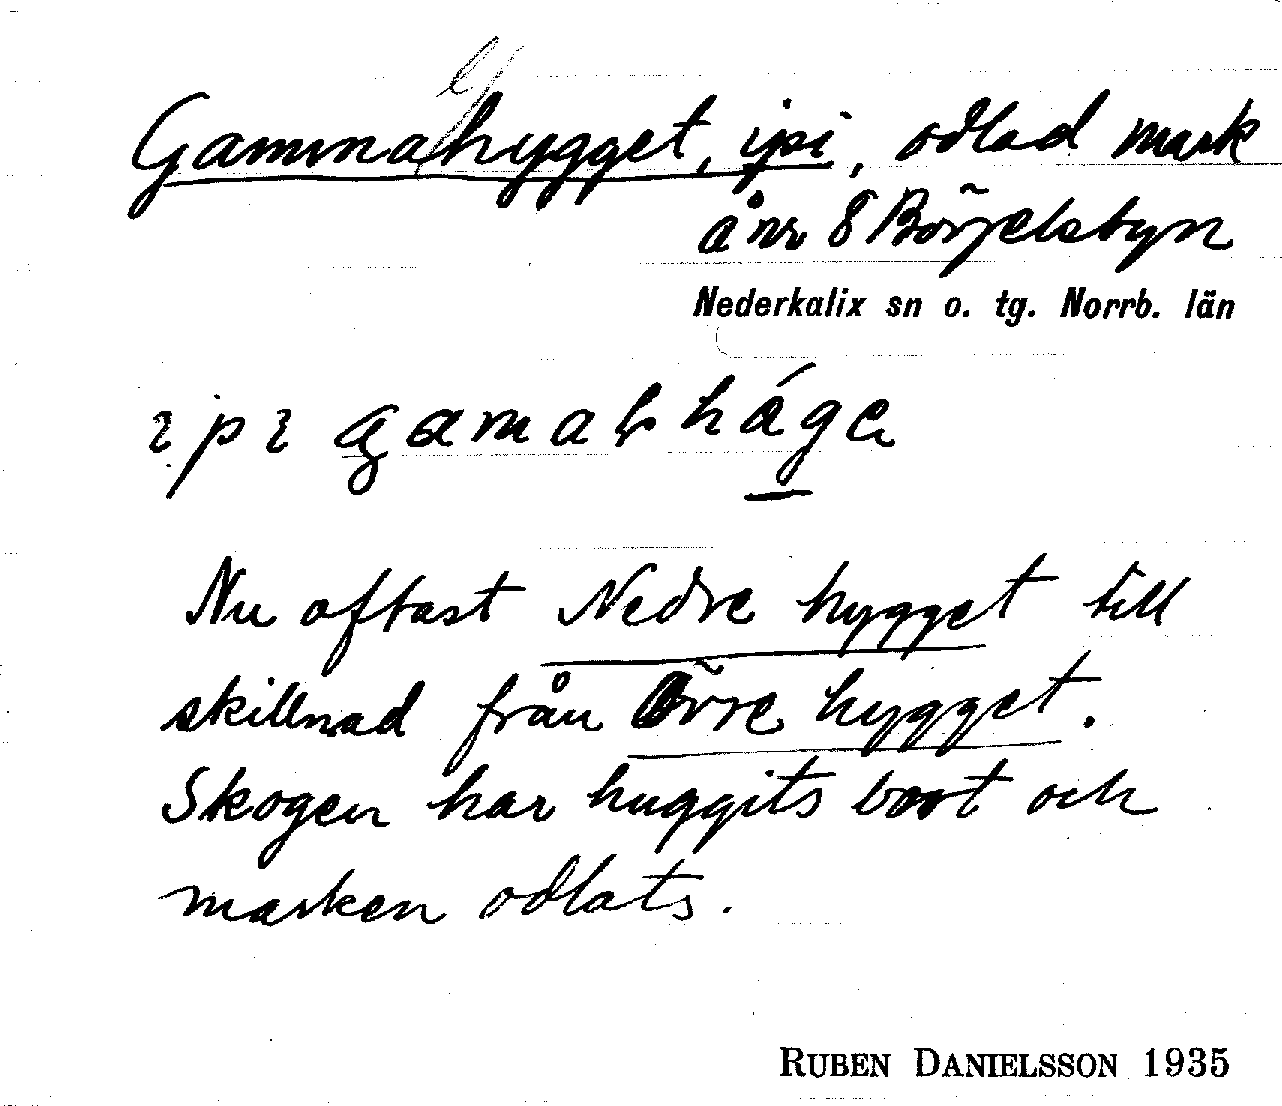 Gammalhygget, ipi, odlad mark
å nr 8 Börjelsbyn
Nederkalix sn o. tg. Norrb. län
Nu oftast Nedre hygget till
skillnad från Övre hygget.
Skogen har huggits bort och
marken odlats.
RUBEN DANIELSSON 1935